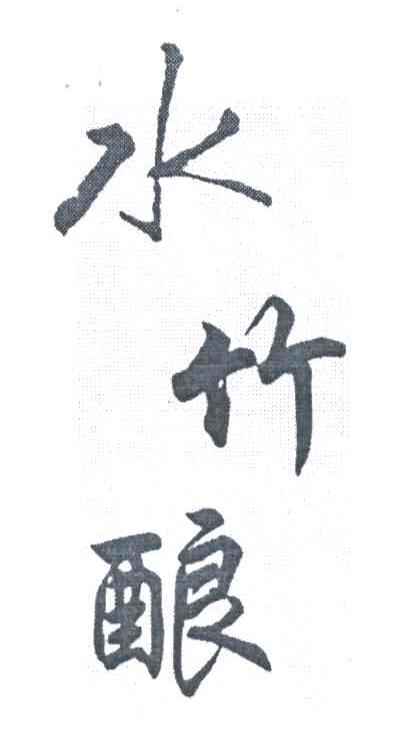 水竹酿